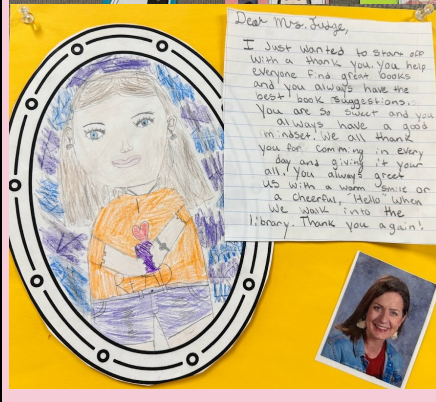 Dear Mrs. Judge,
I Just wanted to start off
with a thank you. You help
everyone find great books
and you always have the
best book suggestions.
You are so sweet and you
always have a good
mindset. We all thank
you for comming in every
day and giving it your
all. You always greet
us with a warm smile or
a cheerful, "Hello" when
we walk into the
library. Thank you again!